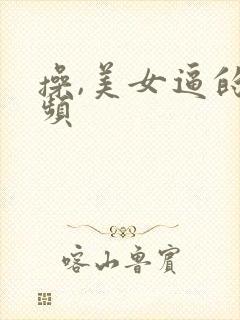 操,美女逼的
频
喀山鲁宾